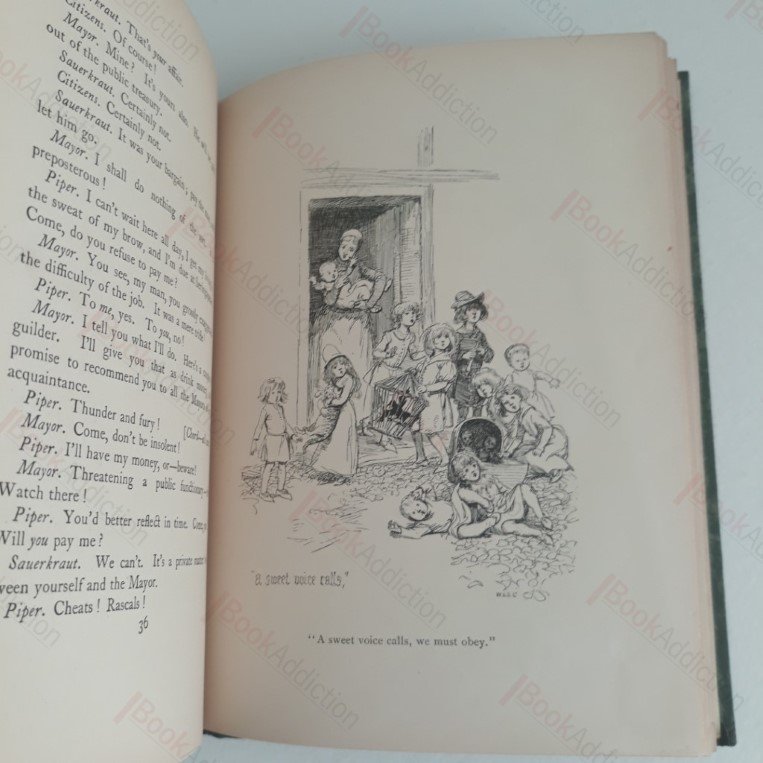 Sauerkraut. That's your affair.
Citizens. Of course!
Mayor. Mine? It's yours
out of the public treasury.
Sauerkraut. Certainly not.
Citizens. Certainly not.
Sauerkraut. It was your bargain,
let him go.
Mayor. I shall do nothing of the
preposterous!
Piper. I can't wait here all day, I
the sweat of my brow, and I'm due at
Come, do you refuse to pay me?
Mayor. You see, my man, you grossly
the difficulty of the job. It was a mere trifle!
Piper. To me, yes. To you, no!
Mayor. I tell you what I'll do. Here's a
guilder. I'll give you that as drink money
promise to recommend you to all the Mayors of
acquaintance.
Piper. Thunder and fury!
Mayor. Come, don't be insolent!
Piper. I'll have my money, or—beware!
Mayor. Threatening a public functionary—
Watch there!
Piper. You'd better reflect in time. Come,
Will you pay me?
Sauerkraut. We can't. It's a private matter
ween yourself and the Mayor.
Piper. Cheats! Rascals!
36
"A sweet voice calls,"
"A sweet voice calls, we must obey."
BookAddiction